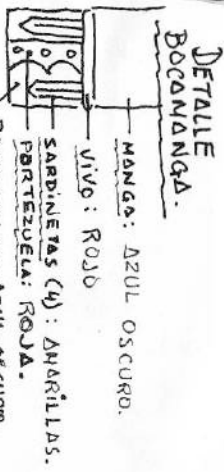 DETALLE
BOCAMANGA.
MANGA: AZUL OSCURO.
VIVO: ROJO
SARDINETAS (4): AMARILLAS.
PORTEZUELA: ROJA.